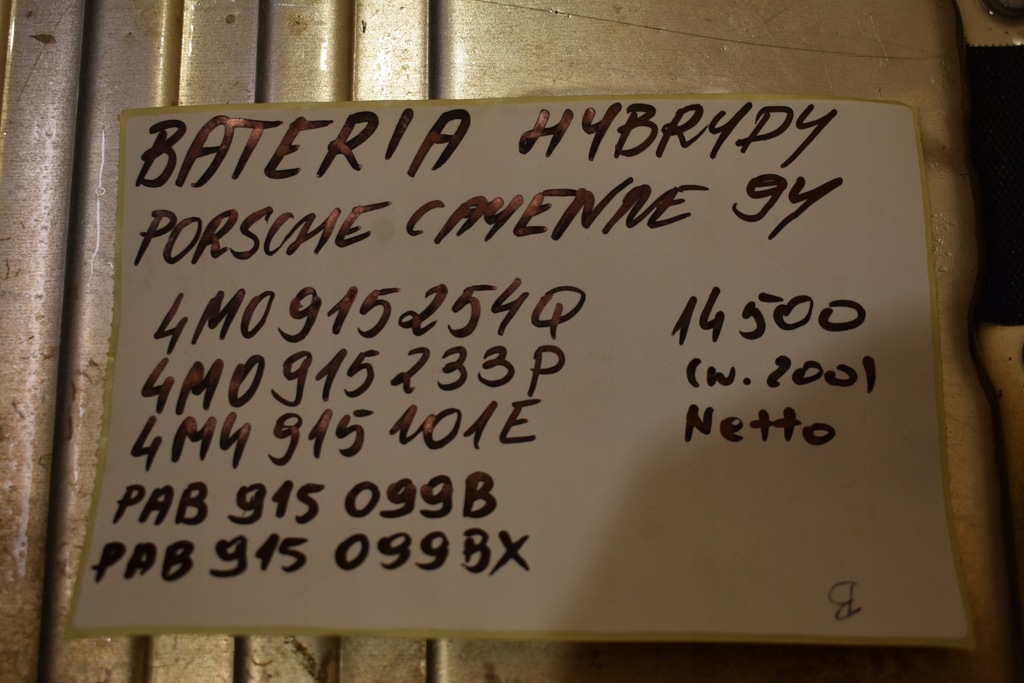 BATERIA HYBRYDY
PORSCHE CAYENNE 9Y
4M0915254Q
4M0915233P
4M4915101E
PAB 915 099B
PAB 915 099BX
14500
(w. 200)
Netto
B